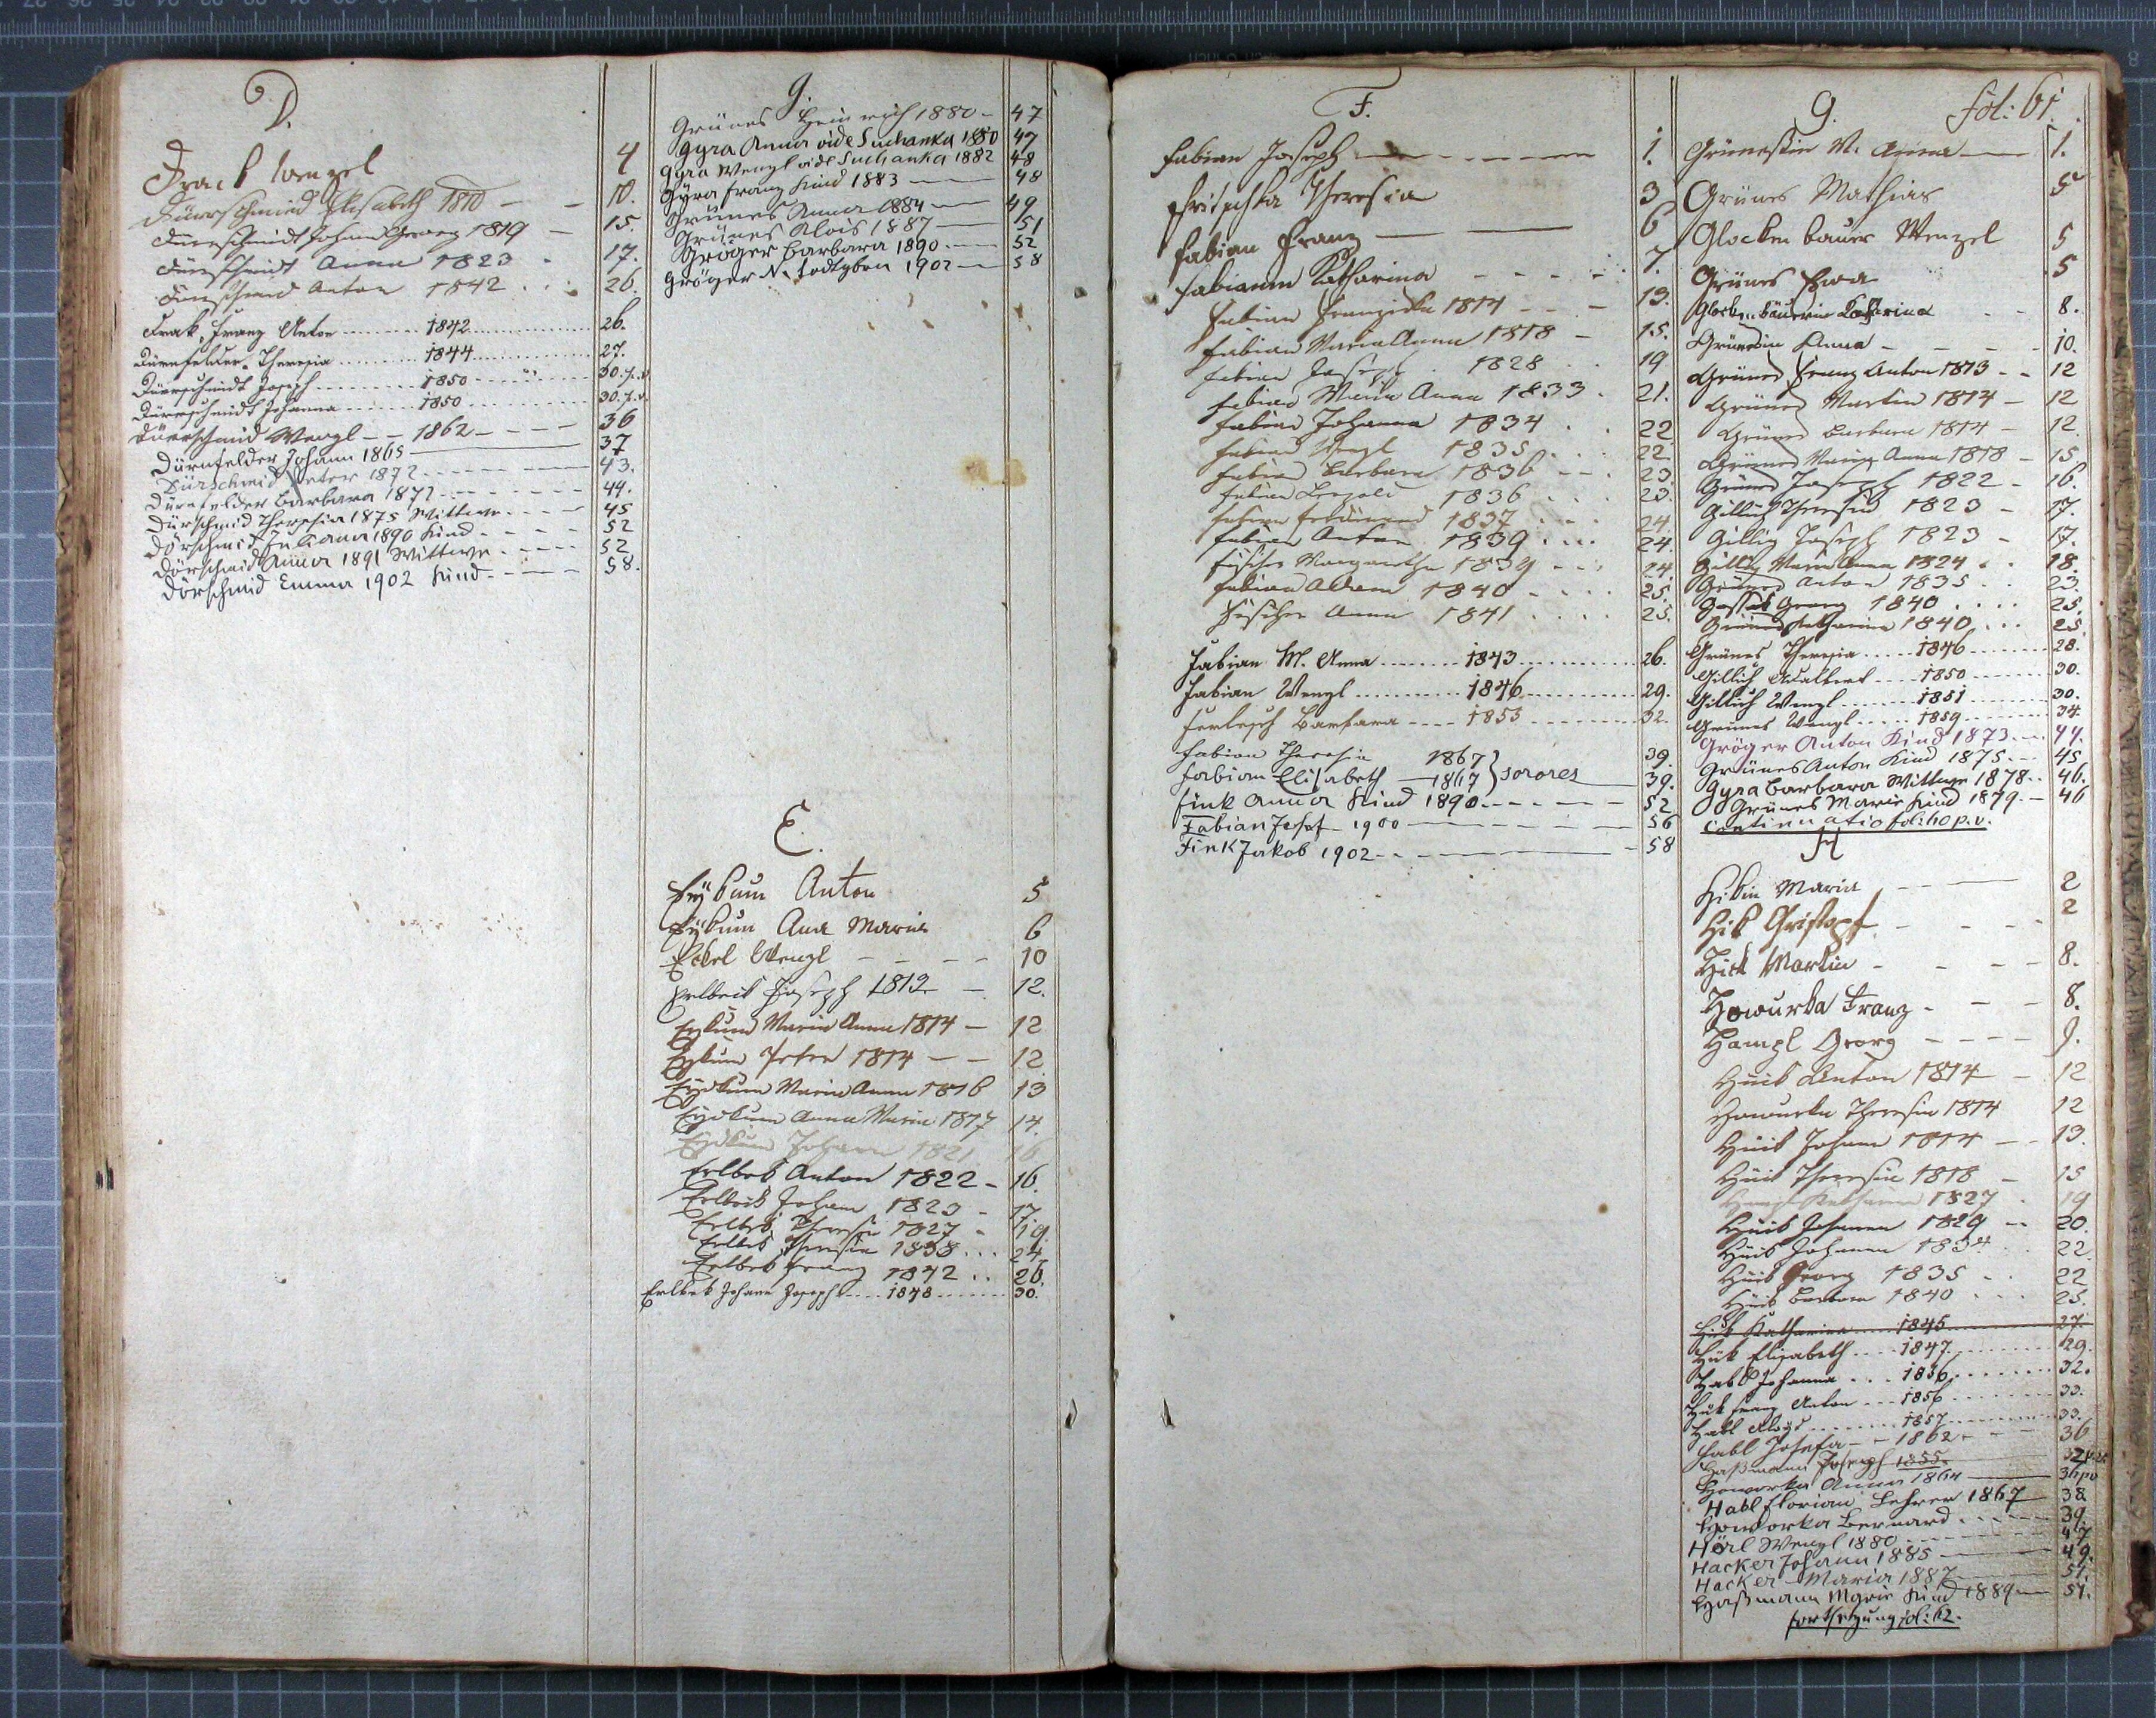 D.
Drack Wenzel 4
Düerschmied Elisabeth 1810 — — 10.
Düerschmidt Johann Georg 1819 — 15.
Düerschmidt Anna 1823 - 17.
Düerschmid Anton 1842 . . . 26.
Drak, Franz Anton ........ 1842 ............ 26.
Dürnfelder Theresia ......... 1844 ............ 27.
Düerschmidt Joseph ......... 1850 ........ 30. p. v.
Dürrschmidt Johanna ....... 1850 ........ 30. p. v.
Düerschmid Wenzl — — 1862 - - - - 36
Dürnfelder Johann 1865 ——— 37
Dürschmid Peter 1872 - - - - - 43.
Dürnfelder Barbara 1872 - - - - - 44.
Dürschmid Theresia 1875 Wittwe - - - - 45
Dörschmid Juliana 1890 Kind - - - - 52
Dörschmid Anna 1891 Wittwe - - - - 52
Dörschmid Emma 1902 Kind - - - - 58.
g.
Grünes Heinrich 1880 — 47
Gyra Anna vide Suchanka 1880 47
Gyra Wenzl vide Suchanka 1882 48
Gyra Franz Kind 1883 —— 48
Grünes Anna 1884 —— 49
Grünes Alois 1887 —— 51
Gröger Barbara 1890 —— 52
Gröger N. todtgbon 1902 — 58
E.
Eykum Anton 5
Eykum Ana Maria 6
Eckel Wenzl — — — — 10
Erlbeck Joseph 1812 — 12.
Eykum Maria Anna 1814 — 12
Eykum Peter 1814 — — 12
Eydkum Maria Anna 1816 13
Eydkum Anna Maria 1817 14.
Eydkum Johann 1821 16
Erlbek Anton 1822 - 16.
Erlbeck Johann 1823 - 17.
Erlbek Theresia 1827 - 19
Erlbek Theresia 1838 . . . 24
Erlbek Franz 1842 . . 26.
Erlbek Johann Joseph .... 1848 ....... 30.
F.
Fabian Joseph — — — — — — 1.
Fritschka Theresia 3
Fabian Franz — — 6
Fabianin Katharina - - - - - 7.
Fabian Franziska 1814 - - - 13.
Fabian Maria Anna 1818 - 15.
Fabian Joseph . 1828 . . 19
Fabian Maria Anna 1833 . 21.
Fabian Johanna 1834 . . 22
Fabian Wenzl 1835 . . . 22
Fabian Barbara 1836 - - . 23.
Fabian Leopold 1836 . . . 23.
Fabian Ferdinand 1837 . . . 24.
Fabian Anton 1839 . . . . 24.
Füscher Margaretha 1839 - - . 24.
Fabian Adam 1840 - . . . 25.
Füscher Anna 1841 . . . . 25.
Fabian M. Anna ........ 1843 ............ 26.
Fabian Wenzl ............ 1846 ............ 29.
Ferlesch Barbara .... 1853 .......... 32.
Fabian Theresia 1867 39.
Fabian Elisabeth — 1867 } sorores 39.
Fink Anna Kind 1890 - - - - - 52
Fabian Josef — 1900 ——— 56
Fink Jakob 1902 - - ——— 58
g. fol: 61.
Grünessin M. Anna — 1.
Grünes Mathias 5
Glockenbauer Wenzel 5
Grünes Eva 5
Glockenbäuerin Katharina - - 8.
Grünessin Anna - - - - 10.
Grünes Franz Anton 1813 - - 12
Grünes Martin 1814 - 12
Grünes Barbara 1814 - 12.
Grünes Maria Anna 1818 - 15
Grünes Joseph 1822 - 16.
Gillich Theresia 1823 - 17.
Gillig Joseph 1823 - 17.
Gillig Maria Anna 1824 . . 18.
Grünes Anton 1835 . . 23.
Georg 1840 . . . . 25.
Grünes Katharina 1840 . . . 25.
Grünes Theresia ..... 1846 ........ 28.
Gillich Adalbert .... 1850 ........ 30.
Gillich Wenzl ........ 1851 ........ 30.
Grünes Wenzl ..... 1859 ........ 34.
Gröger Anton Kind 1873 — 44.
Grünes Anton Kind 1875 - - 45
Gyra Barbara Wittwe 1878 - - 46.
Grünes Marie Kind 1879 - - 46
Continuatio fol: 60 p. v.
H
Hikin Maria — — 2
Hik Christoph - - - - 2
Hick Martin - - - - 8.
Howurka Franz - - - 8.
Hampl Georg - - - - 9.
Huik Anton 1814 - 12
Howurka Theresia 1814 12
Huik Johann 1814 - - 13.
Huik Theresia 1818 - 15
Katharina 1827 . 19
Huik Johanna 1829 - - 20.
Huik Johanna 1834 . . 22.
Huik Georg 1835 . . 22
Huik Barbara 1840 . . . 25.
Hük Katharina .... 1845 ........ 27.
Hük Elisabeth .... 1847 ........ 29.
Habl Johanna ... 1856 ........ 32.
Hük Franz Anton ... 1856 ........ 33.
Habl Aloys ........ 1857 ........ 33.
Habl Josefa - - 1862 - - - 36
Haßmann Joseph 1855 32
Howorka Anna 1864 — 36 pv
Habl Florian, Lehrer 1867 — 38
Howorka Bernard - - - - 39.
Hörl Wenzl 1880 - - - - 47
Hacker Johann 1885 — 49.
Hacker Maria 1887 — 51.
Haßmann Marie Kind 1889 — 51.
Fortsetzung fol: 62.